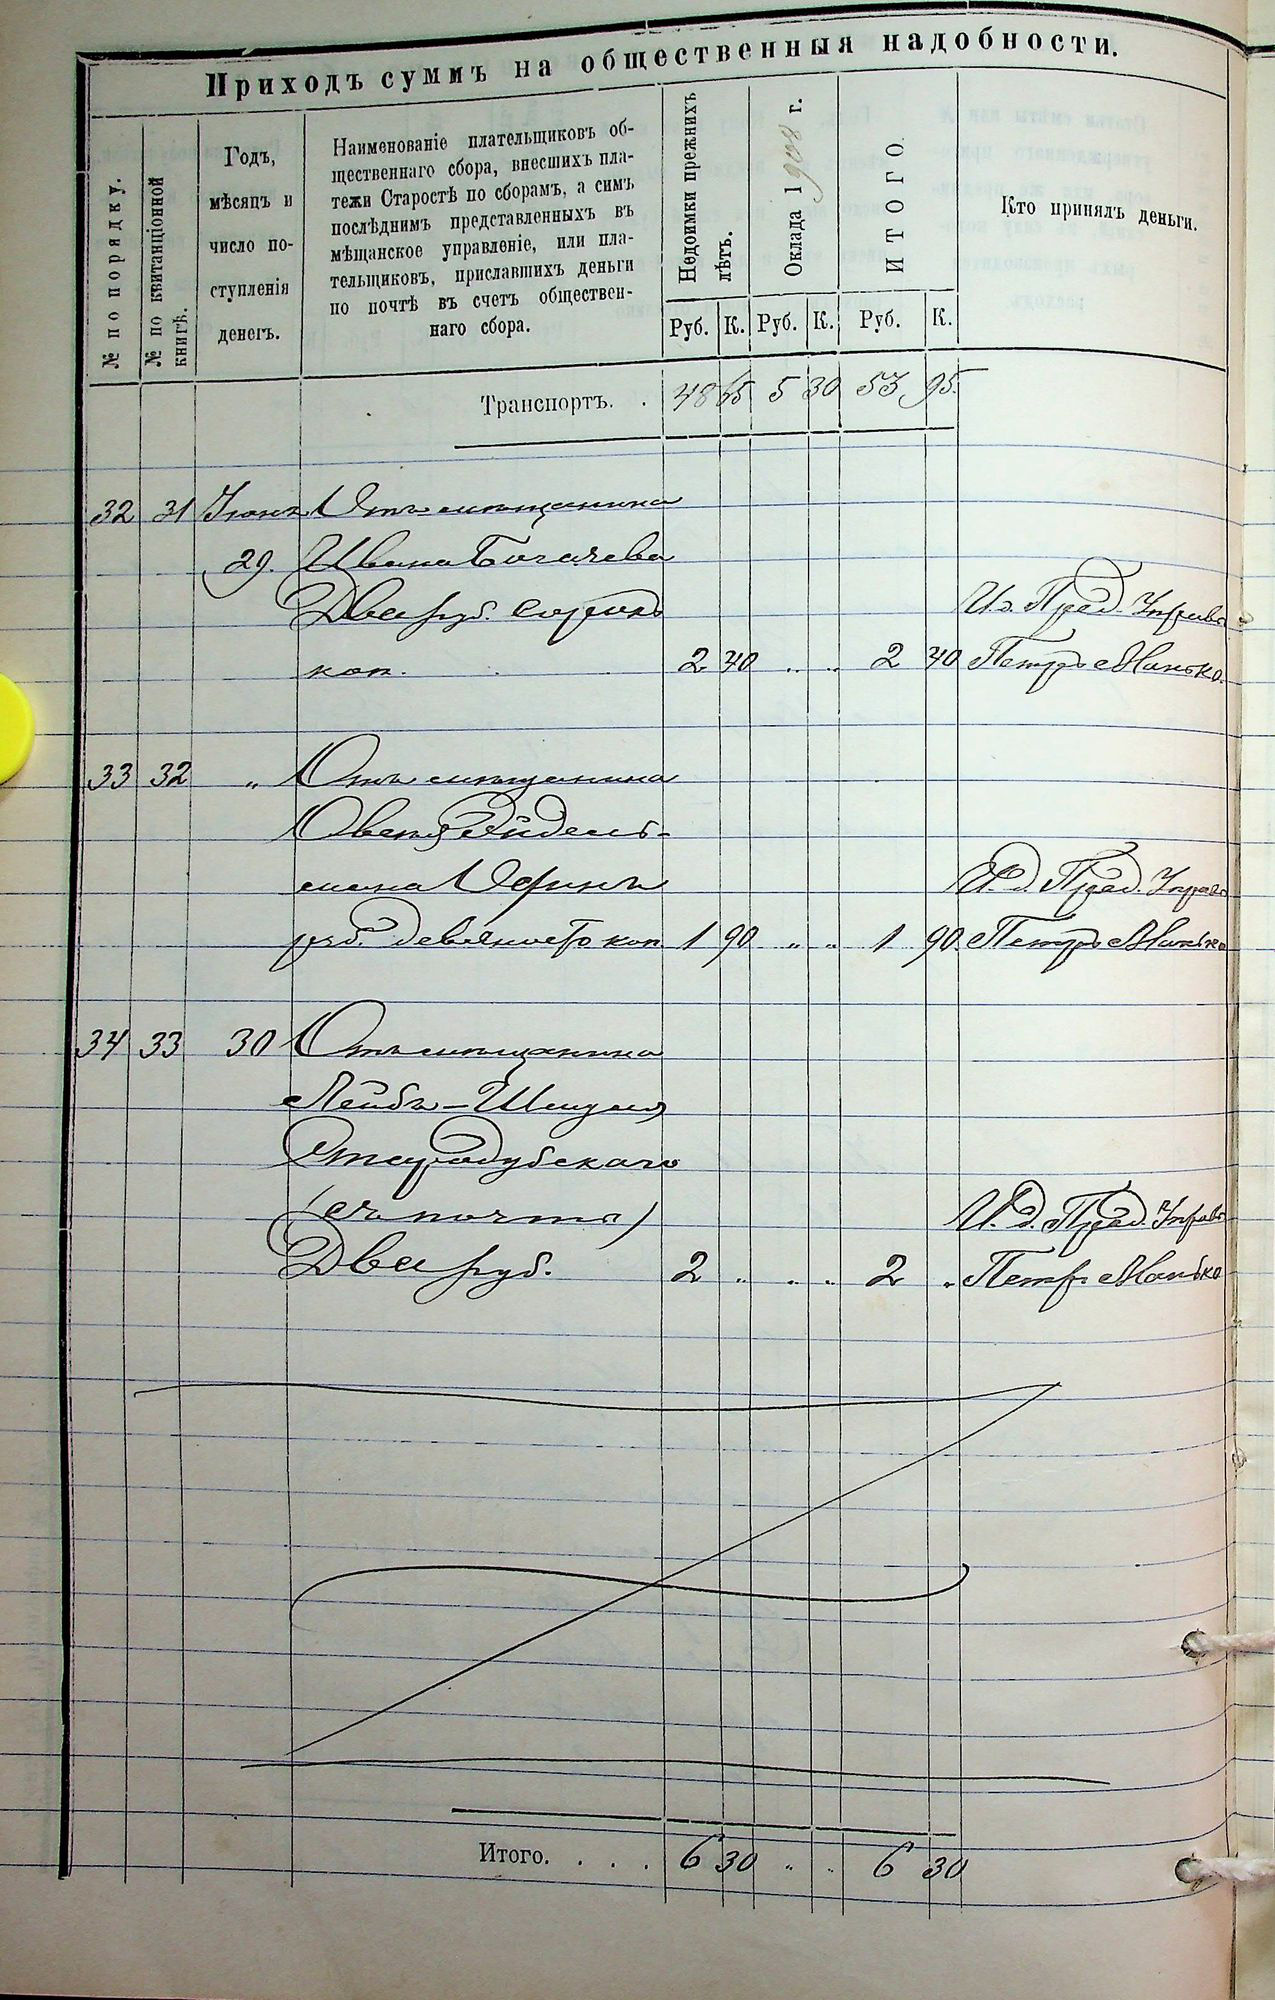 Приходъ суммъ на общественныя надобности.
№ по порядку.
№ по квитанціонной
книгѣ.
Годъ,
мѣсяцъ и
число по-
ступленія
денегъ.
Наименованіе плательщиковъ об-
щественнаго сбора, внесшихъ пла-
тежи Старостѣ по сборамъ, а симъ
послѣднимъ представленныхъ въ
мѣщанское управленіе, или пла-
тельщиковъ, приславшихъ деньги
по почтѣ въ счетъ обществен-
наго сбора.
Недоимки прежнихъ
лѣтъ.
Оклада 1908 г.
ИТОГО.
Кто принялъ деньги.
Руб. К. Руб. К. Руб. К.
Транспортъ. . 48 65 5 30 53 95.
32 31 Іюня Отъ мѣщанина
29. Ивана Богачева
Два руб. сорокъ И. д. Пред. Управы
коп. 2 40 „ „ 2 40 Петръ Манько.
33 32 „ Отъ мѣщанина
Овсея Эйдель-
мана Одинъ И. д. Пред. Управы
руб. девяносто коп. 1 90 „ „ 1 90. Петръ Манько
34 33 30 Отъ мѣщанина
Лейбы-Шмуля
Стародубскаго
(съ почты) И. д. Пред. Управы
Два руб. 2 „ „ „ 2 „ Петръ Манько
Итого. . . . . 6 30 „ „ 6 30